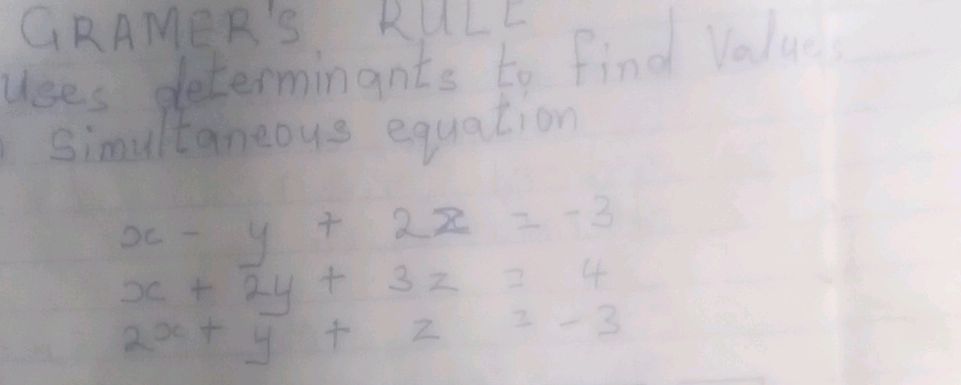 GRAMER'S RULE
Uses determinants to find Values
Simultaneous equation
x - y + 2z = -3
x + 2y + 3z = 4
2x + y + z = -3